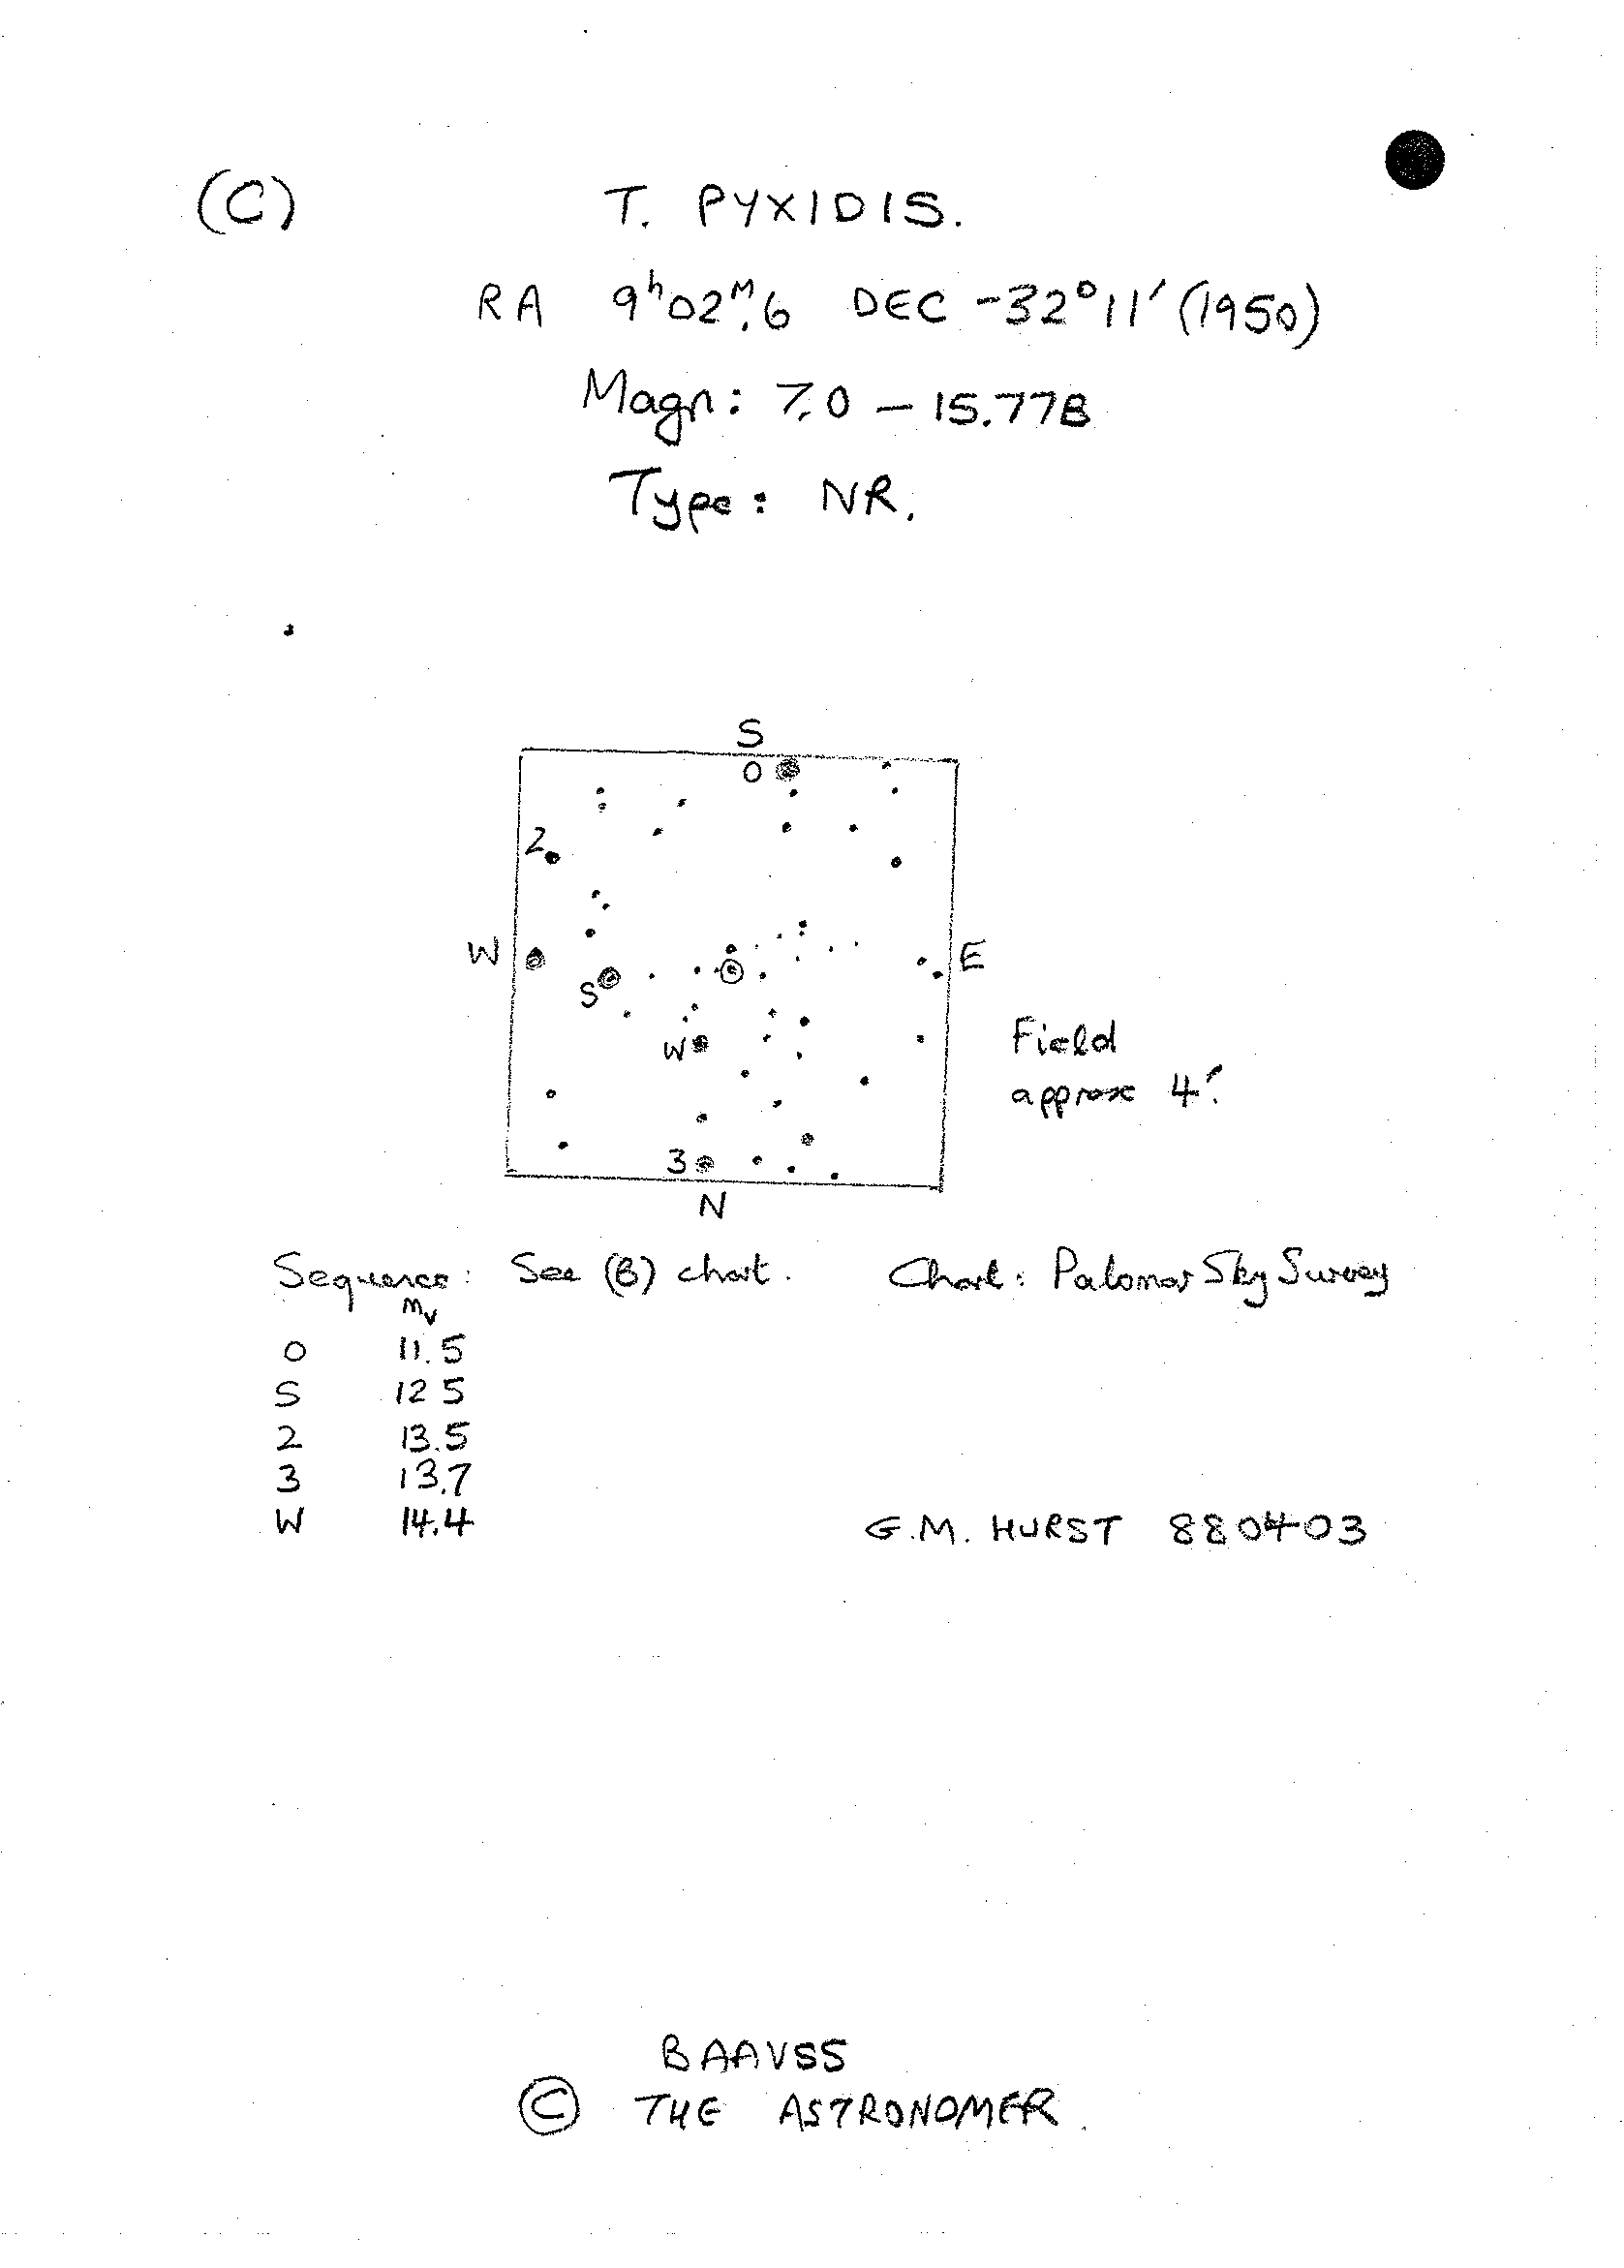 (C) T. PYXIDIS.
RA 9ʰ02ᴹ.6 DEC -32°11′ (1950)
Magn: 7.0 – 15.77B
Type: NR.
S
O
2
W E
S
W
Field
approx 4′.
3
N
Sequence: See (B) chart. Chart: Palomar Sky Survey
mv
O 11.5
S 12 5
2 13.5
3 13.7
W 14.4
G.M. HURST 880403
BAAVSS
© THE ASTRONOMER.